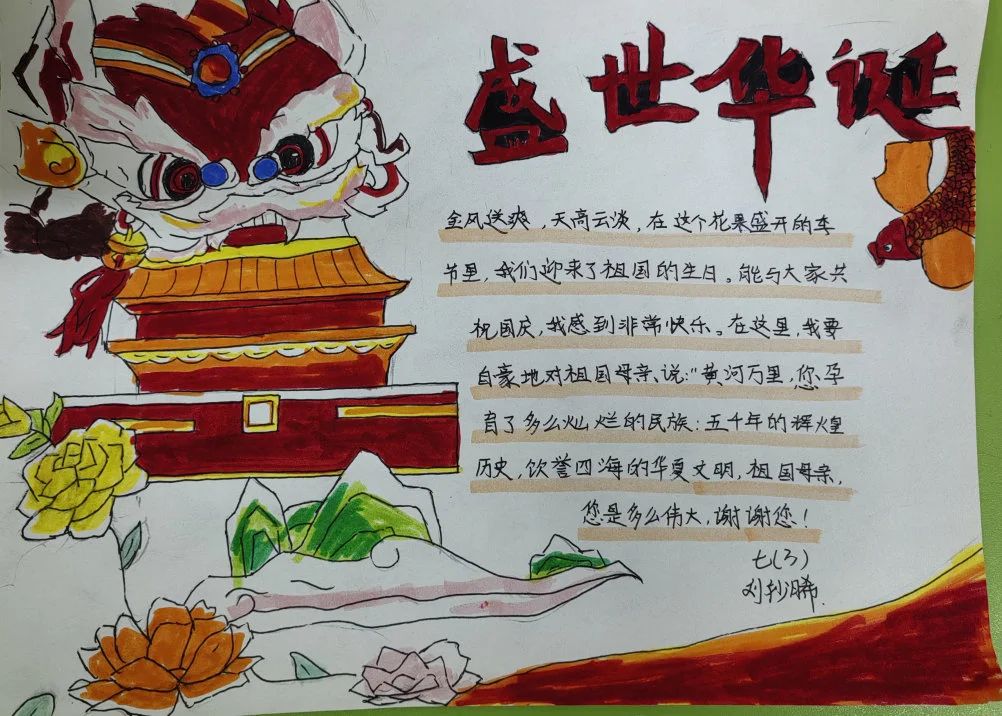 盛世华诞
金风送爽，天高云淡，在这个花果盛开的季
节里，我们迎来了祖国的生日。能与大家共
祝国庆，我感到非常快乐。在这里，我要
自豪地对祖国母亲说："黄河万里，您孕
育了多么灿烂的民族；五千年的辉煌
历史，饮誉四海的华夏文明，祖国母亲，
您是多么伟大，谢谢您！
七(3)